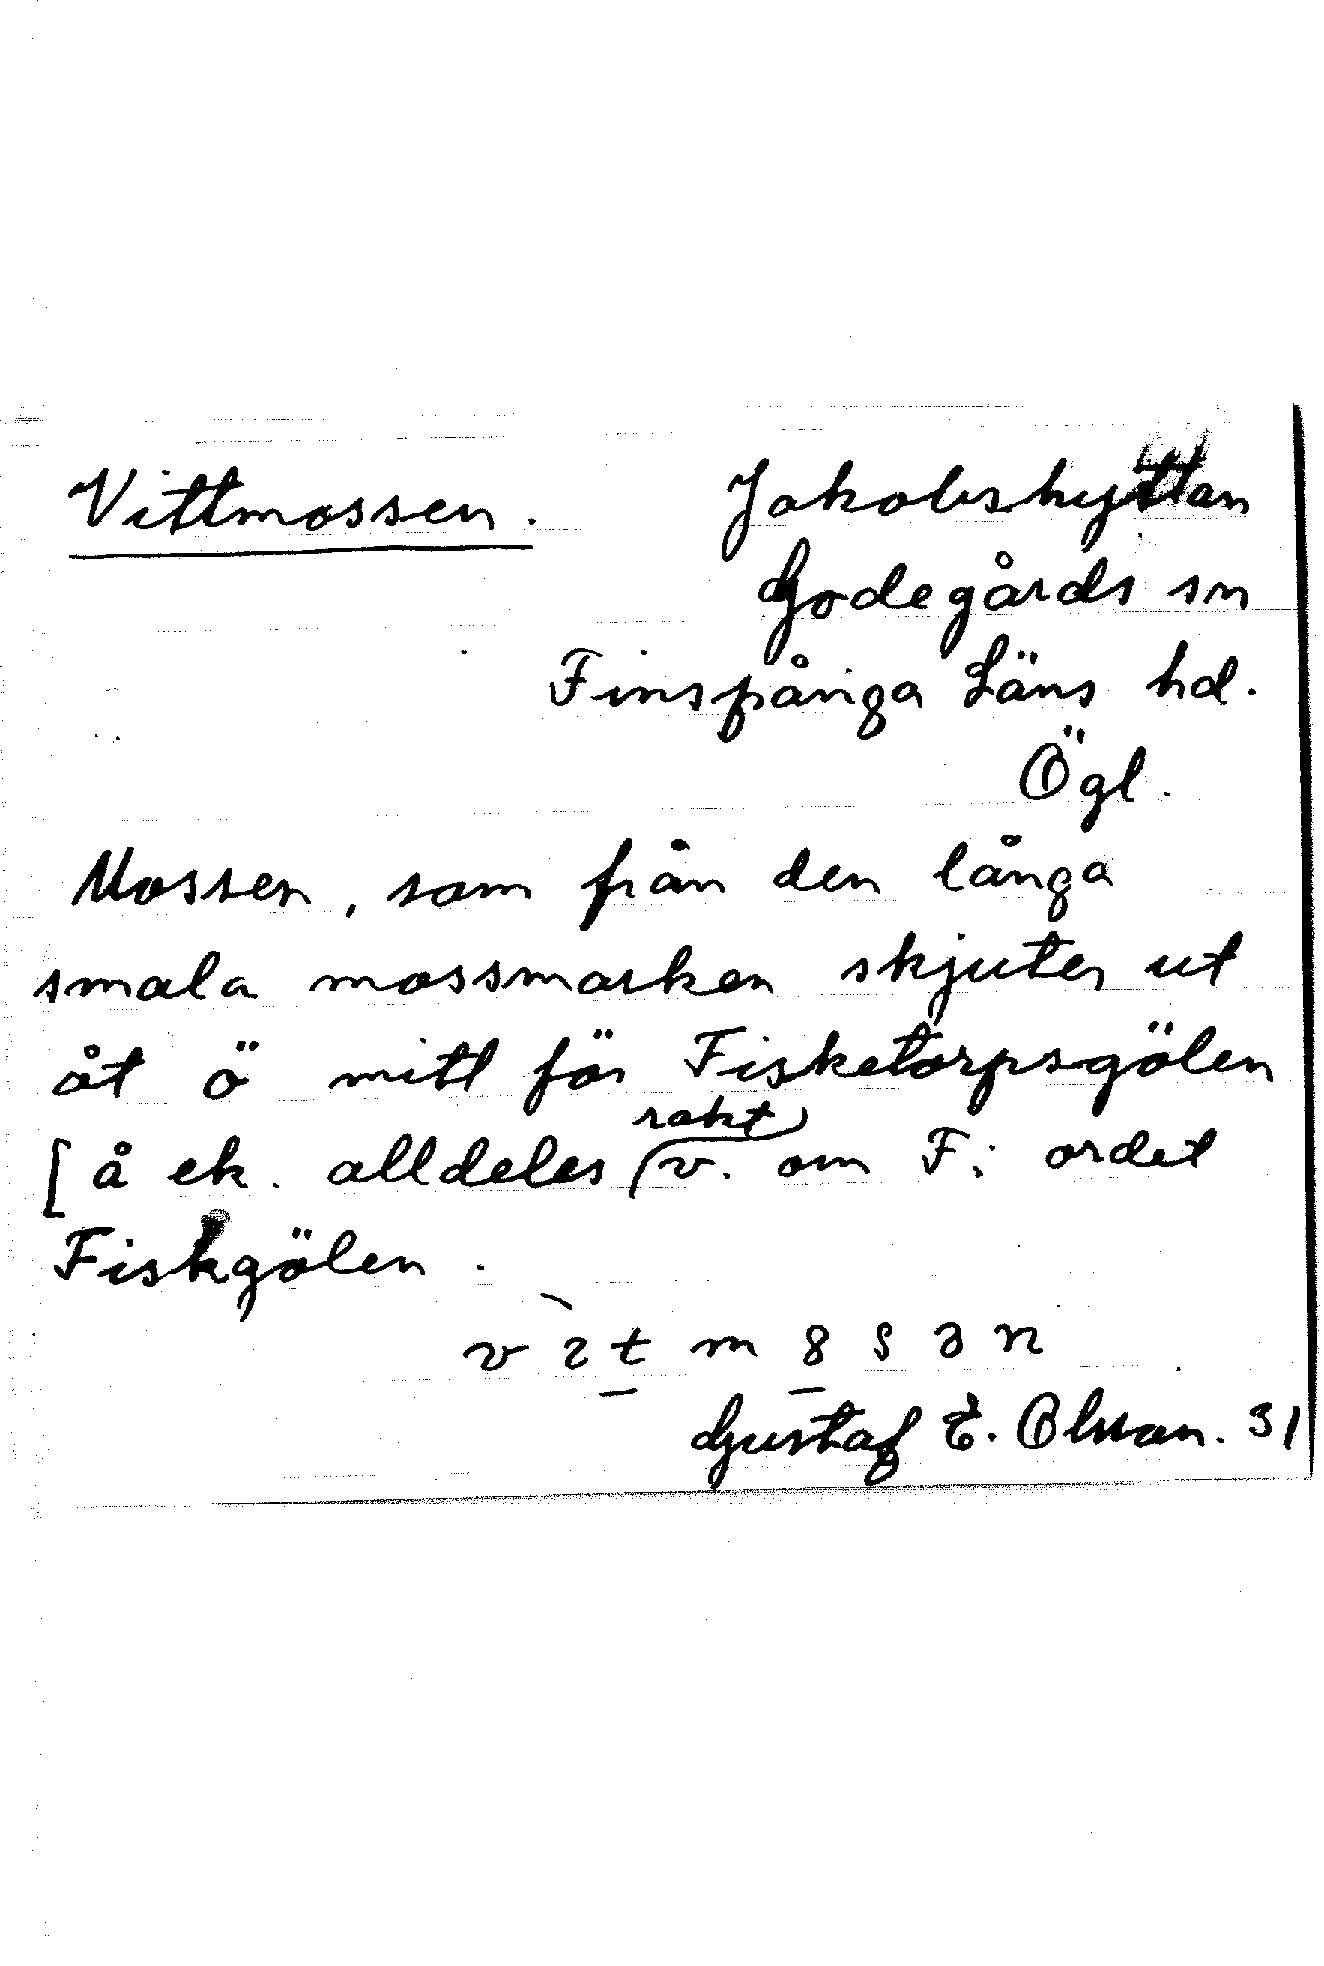 Vittmossen.
Jakobshyttan
Godegårds sn
Finspånga Läns hd.
Ögl.
Mossen, som från den långa
smala mossmarken skjuter ut
åt ö mitt för Fisketorpsgölen
[å ek. alldeles rakt v. om F; ordet
Fiskgölen.
Gustaf E. Olsson. 31